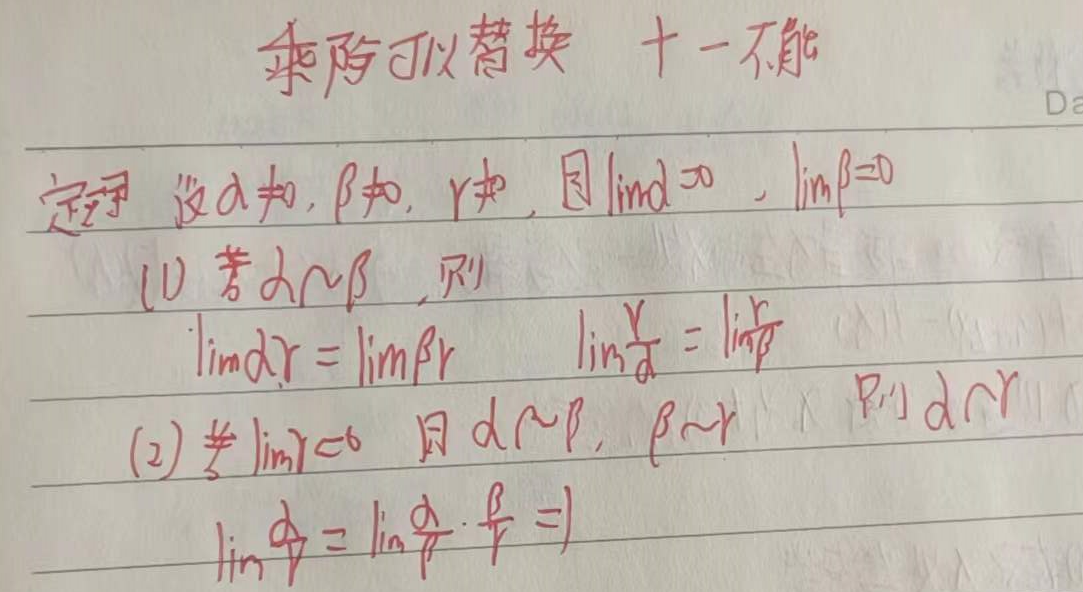 乘除可以替换 + - 不能
Da
定理 设α≠0, β≠0, γ≠0, 因limα=0, limβ=0
(1) 若α~β, 则
limαγ = limβγ lim γ/α = lim γ/β
(2) 若limγ=0 因α~β, β~γ 则α~γ
lim α/γ = lim α/β · β/γ = 1